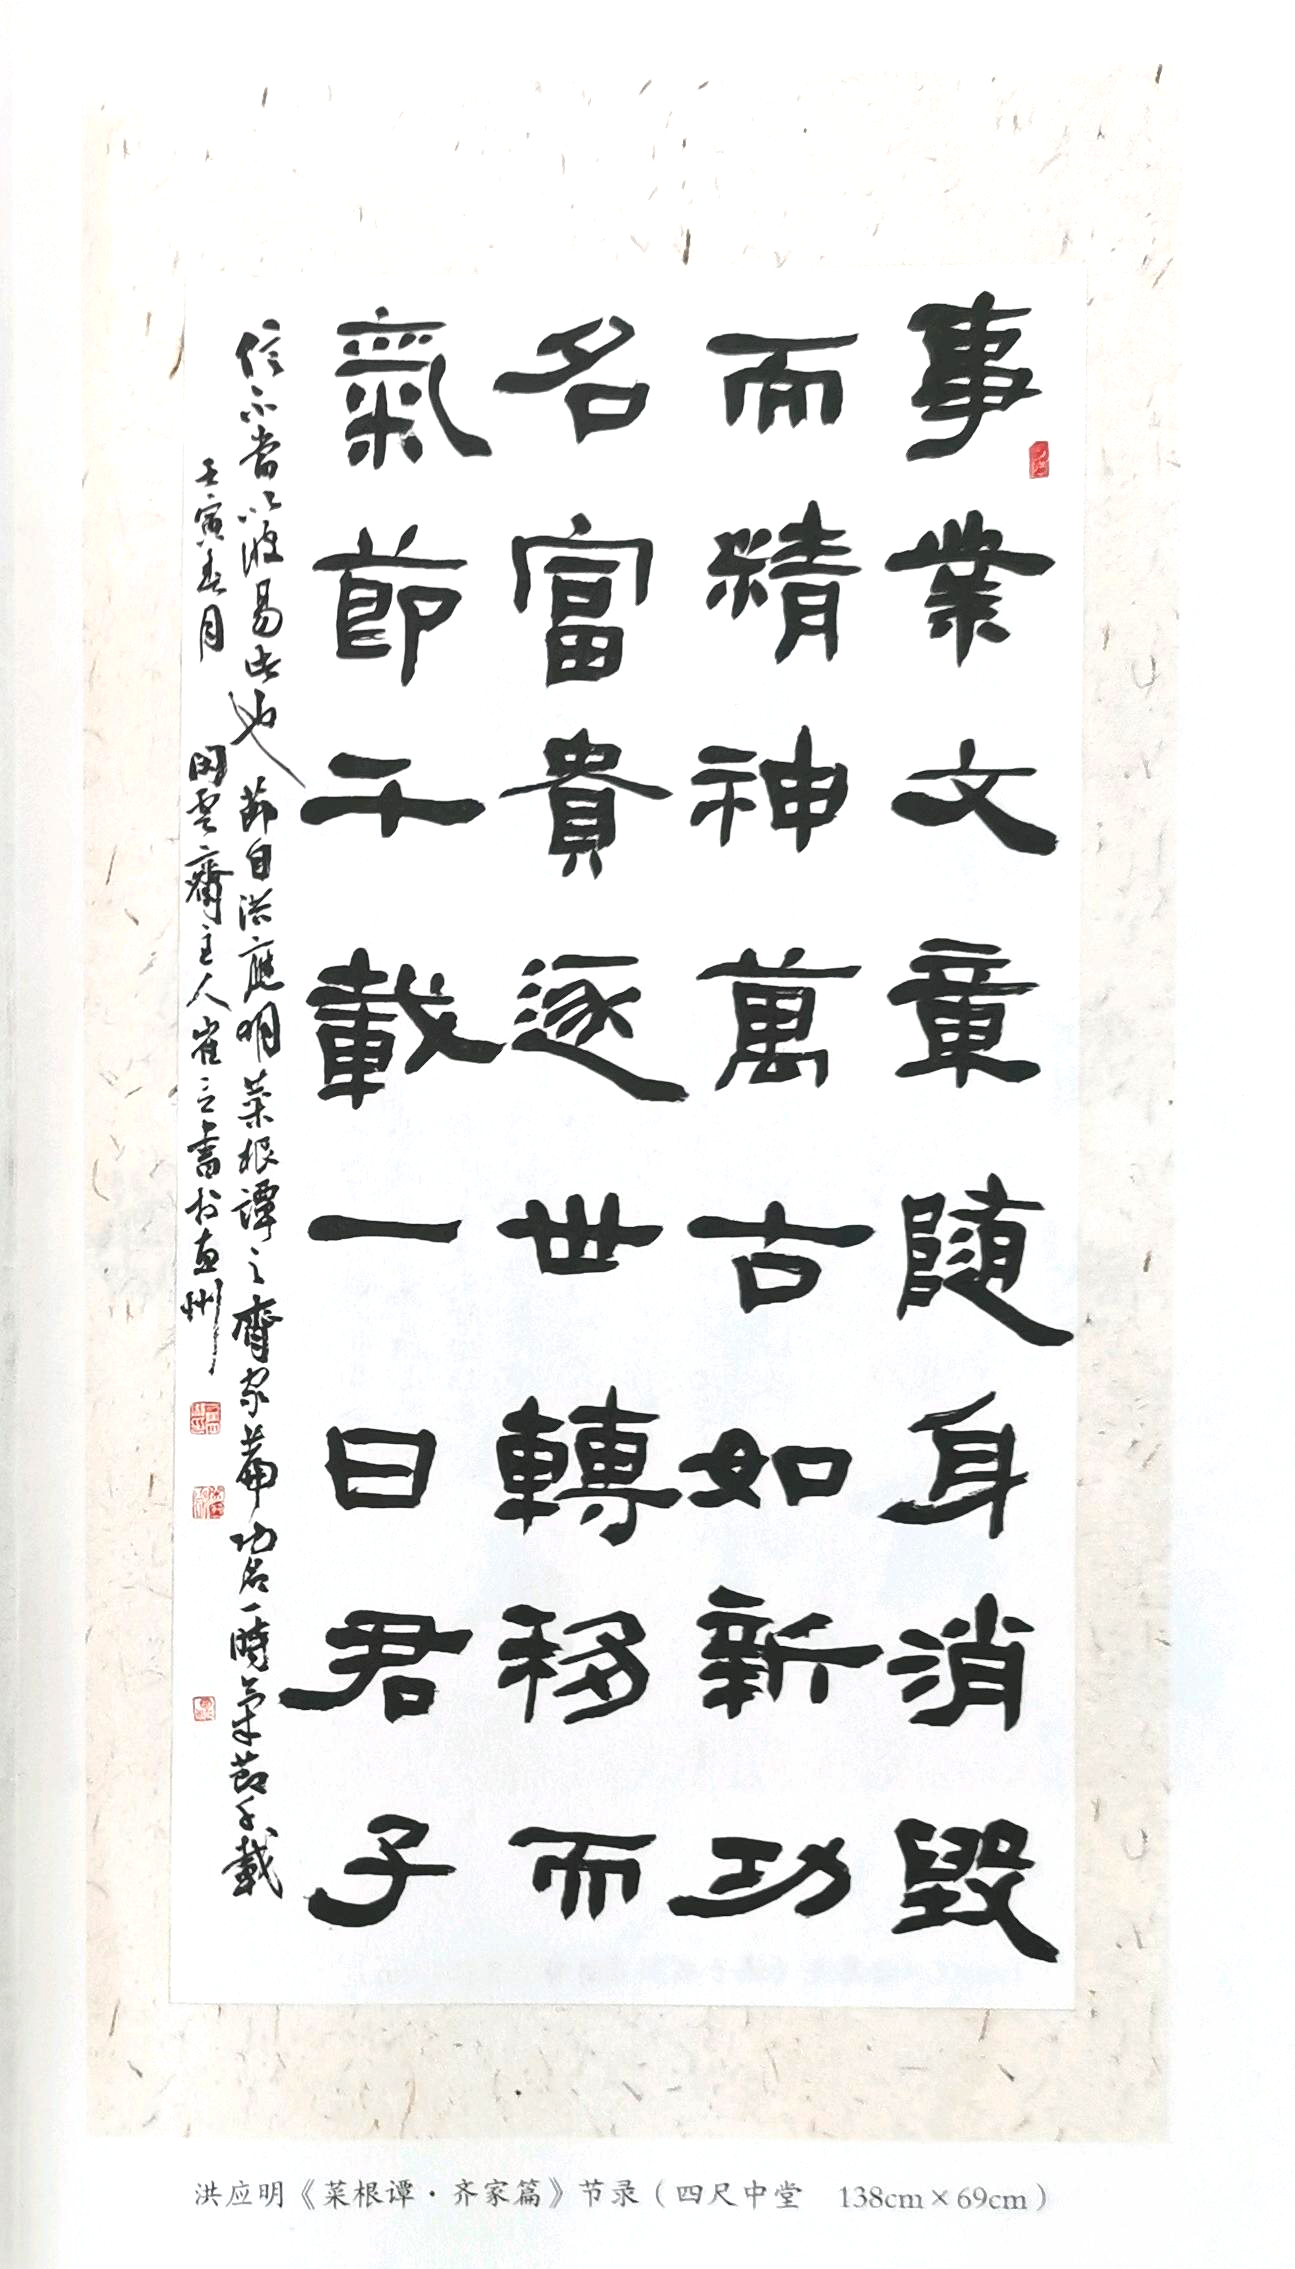 事業文章随身消毀
而精神萬古如新功
名富貴逐世轉移而
氣節千載一日君子
信不當以彼易此也 節自洪應明菜根譚之齊家篇 功名一時氣節千載
壬寅春月 閑雲齋主人崔書於州
洪应明《菜根谭·齐家篇》节录（四尺中堂 138cm×69cm）